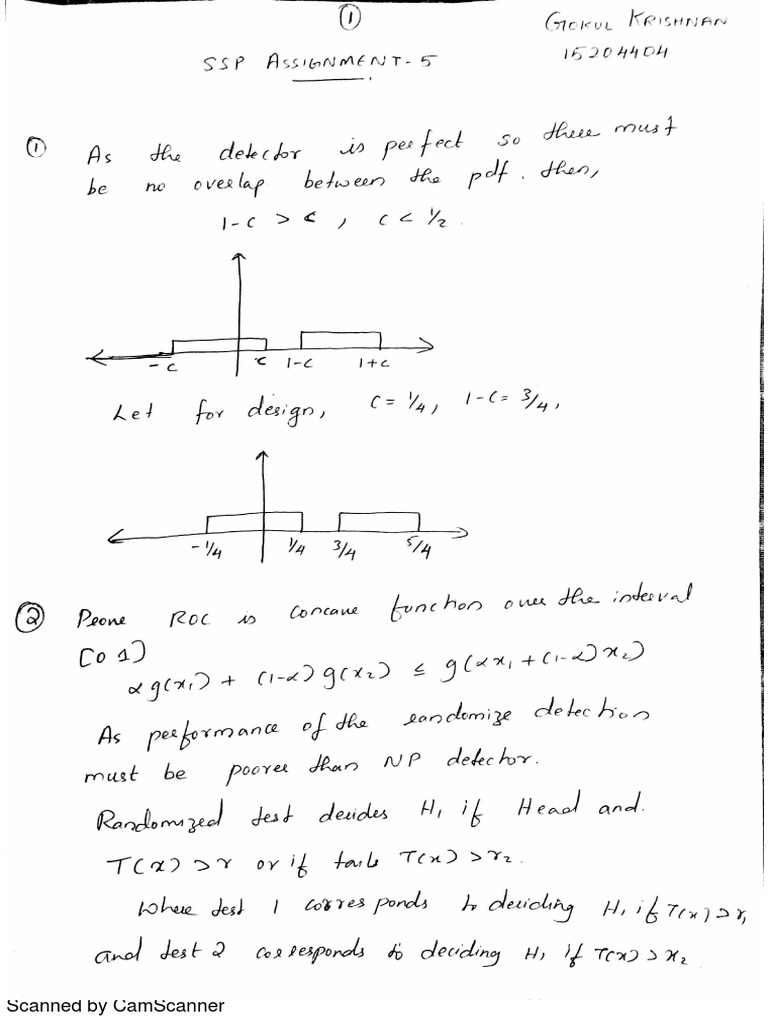 ①
GOKUL KRISHNAN
15204404
SSP ASSIGNMENT-5
① As the detector is perfect so there must
be no overlap between the pdf. then,
1-c > c, c < 1/2.
-c c 1-c 1+c
Let for design, c = 1/4, 1-c = 3/4,
-1/4 1/4 3/4 5/4
② Prove ROC is concave function over the interval
[0 1]
αg(x₁) + (1-α) g(x₂) ≤ g(αx₁ + (1-α)x₂)
As performance of the randomize detection
must be poorer than NP detector.
Randomized test decides H₁ if Head and.
T(x) > r or if tails T(x) > r₂.
Where test 1 corresponds to deciding H₁ if T(x) > r₁
and test 2 corresponds to deciding H₁ if T(x) > r₂
Scanned by CamScanner